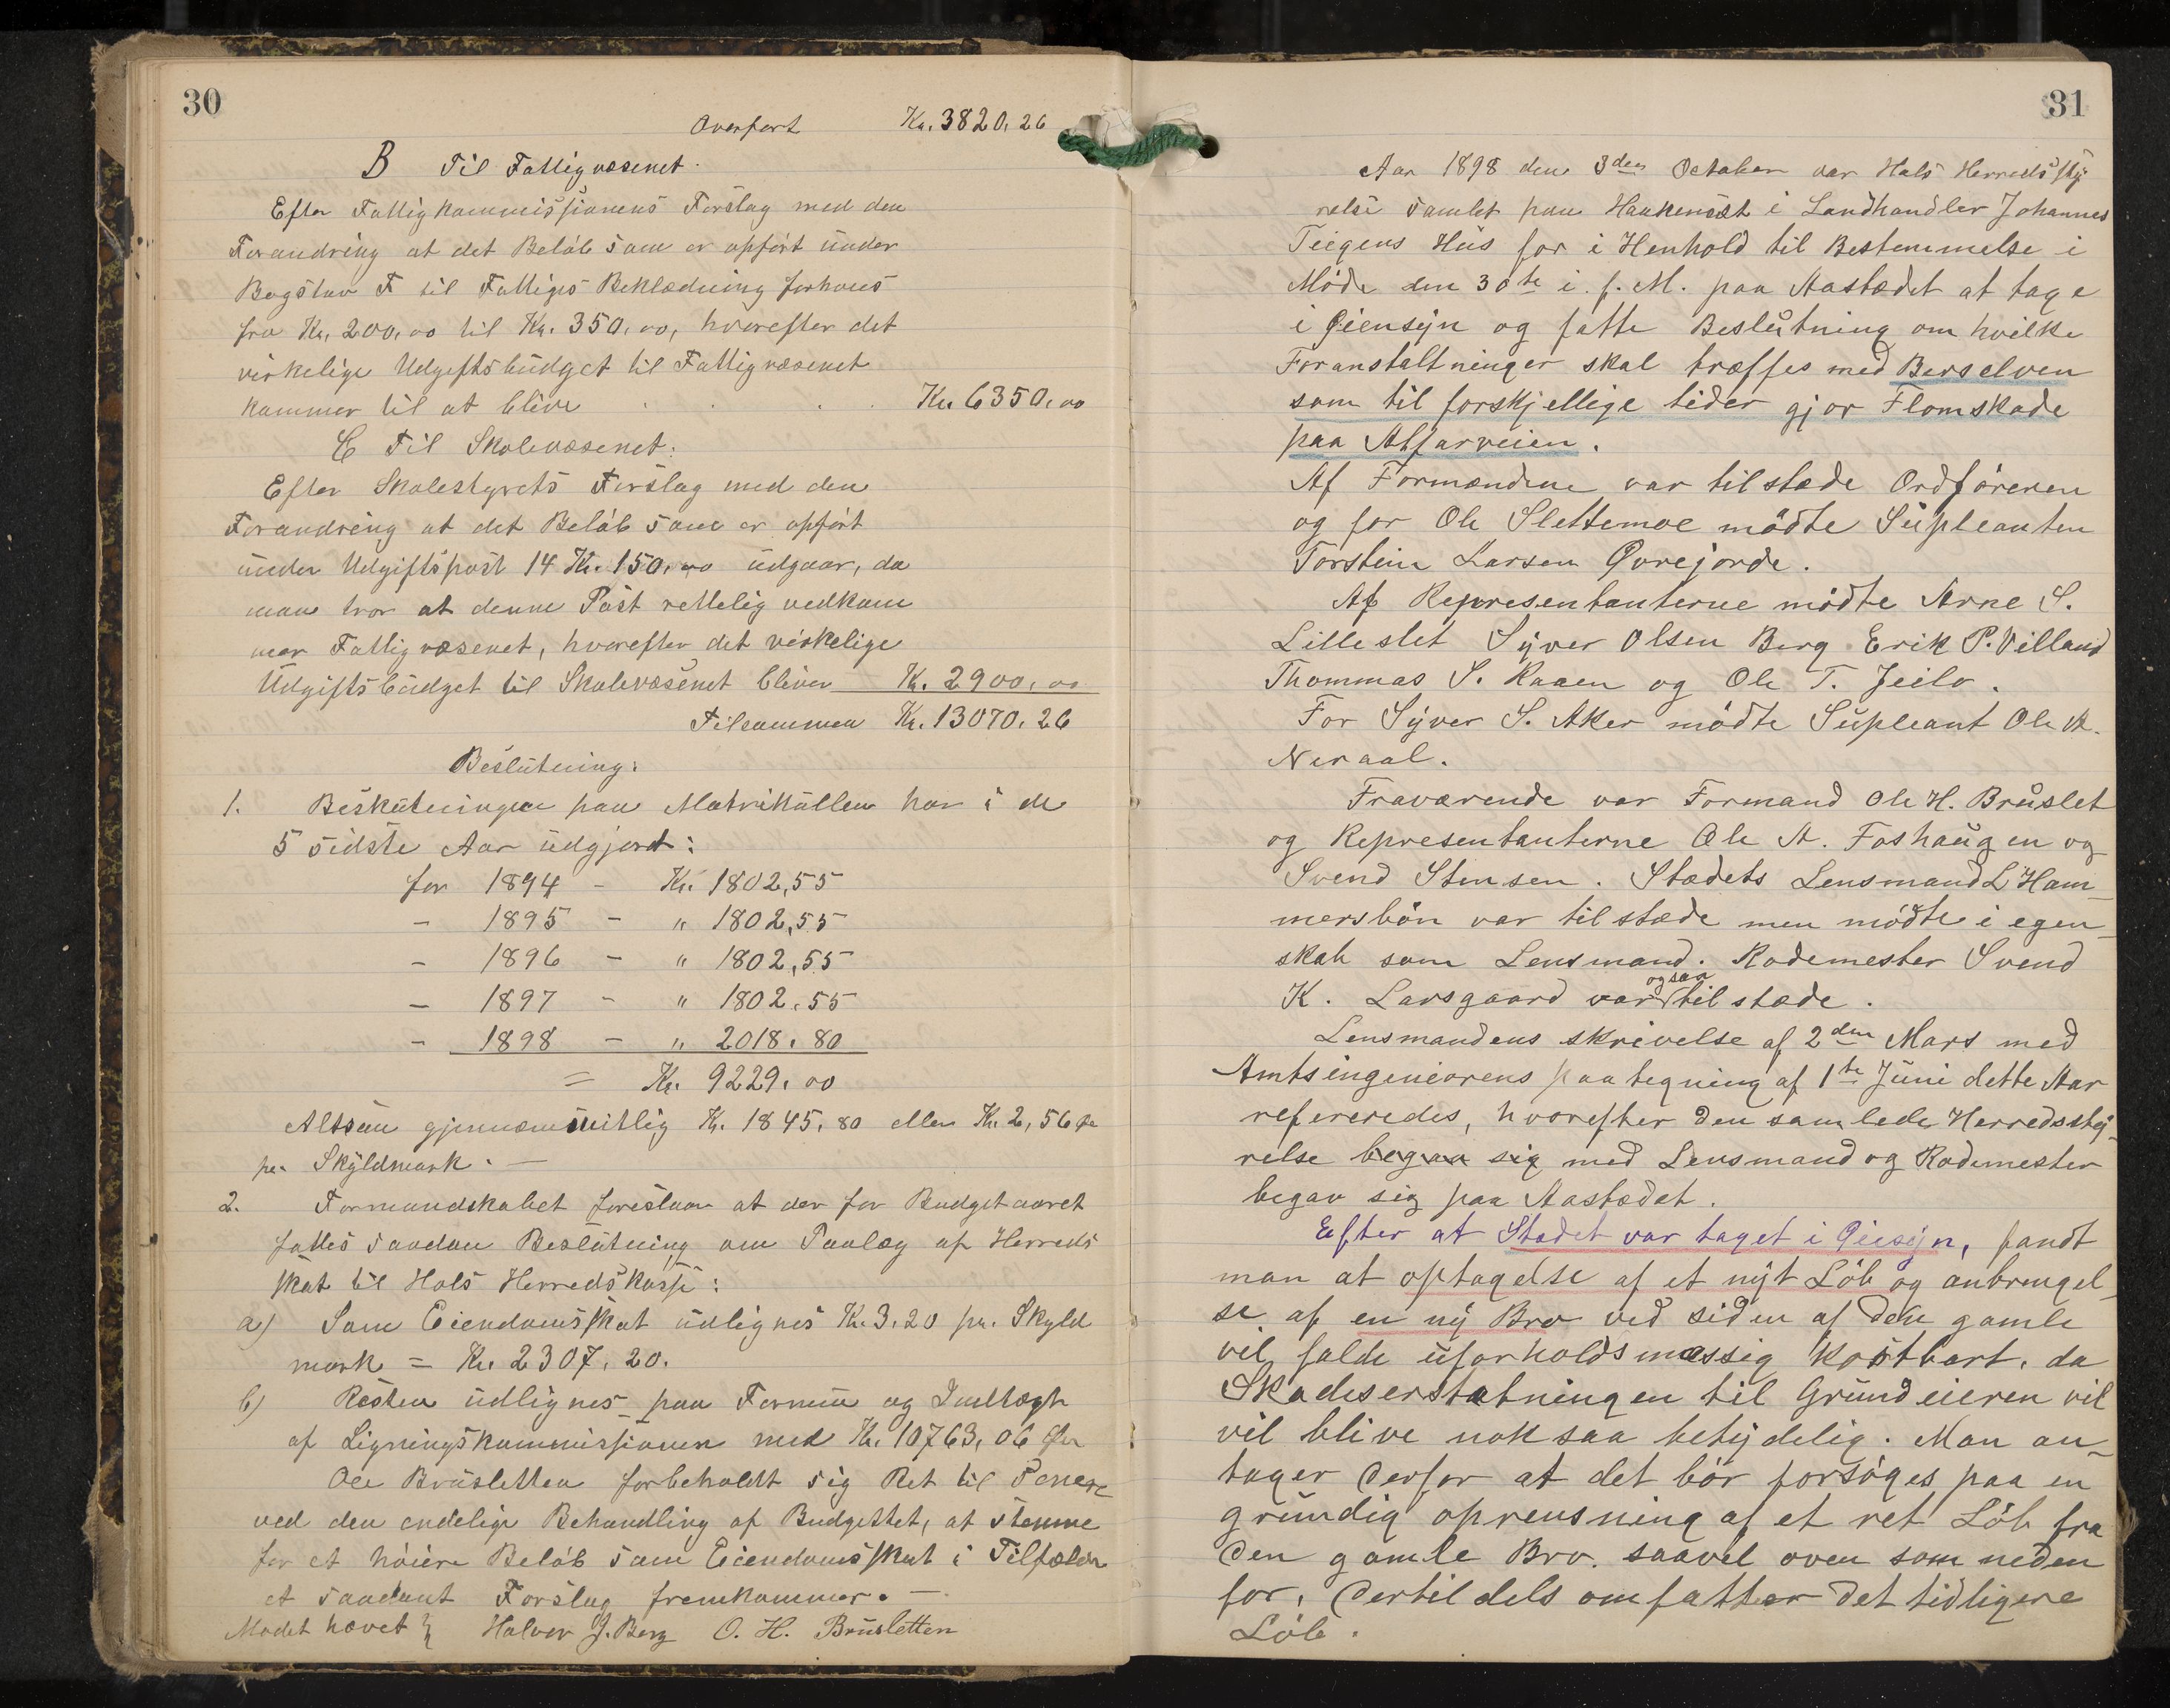 30
Overført Kr. 3820.26
B Til Fattigvæsenet.
Efter Fattigkommissionens Forslag med den
Forandring at det Beløb som er opført under
Bogstav F til Fattiges Beklædning forhøies
fra Kr. 200,00 til Kr. 350,00, hvorefter det
virkelige Udgiftsbudget til Fattigvæsenet
kommer til at blive . . . Kr. 6350,00
C Til Skolevæsenet:
Efter Skolestyrets Forslag med den
Forandring at det Beløb som er opført
under Udgiftspost 14 Kr. 150,00 udgaar, da
man tror at denne Post rettelig vedkom
mer Fattigvæsenet, hvorefter det virkelige
Udgiftsbudget til Skolevæsenet bliver Kr. 2900,00
Tilsammen Kr. 13070.26
Beslutning:
1. Beskatningen paa Matrikullen har i de
5 sidste Aar udgjort:
for 1894 - Kr. 1802,55
- 1895 - " 1802,55
- 1896 - " 1802,55
- 1897 - " 1802,55
- 1898 - " 2018.80
= Kr. 9229.00
Altsaa gjennemsnitlig Kr. 1845.80 eller Kr. 2,56
pr. Skyldmark. —
2. Formandskabet foreslaar at der for Budgetaaret
fattes saadan Beslutning om Paalæg af Herreds
skat til Hols Herredskasse:
a) Som Eiendomsskat udlignes Kr. 3.20 pr. Skyld
mark = Kr. 2307.20.
b) Resten udlignes paa Formue og Indtægt
af Ligningskommissionen med Kr. 10763,06
Ole Brusletten forbeholdt sig Ret til senere
ved den endelige Behandling af Budgettet, at stemme
for et høiere Beløb som Eiendomsskat i Tilfælde
et saadant Forslag fremkommer. —
Mødet hævet Halvor J. Berg O. H. Brusletten
31
Aar 1898 den 3den October var Hols Herredssty
relse samlet paa Haakenset i Landhandler Johannes
Teigens Hus for i Henhold til Bestemmelse i
Møde den 30te i f. M. paa Aastædet at tage
i Øiensyn og fatte Beslutning om hvilke
Foranstaltninger skal træffes med Berselven
som til forskjellige tider gjør Flomskade
paa Alfarveien.
Af Formændene var tilstæde Ordføreren
og for Ole Slettemoe mødte Supleanten
Torstein Larsen Øvrejorde.
Af Representanterne mødte Arne S.
Lilleslet Syver Olsen Berg Erik P. Villand
Thommas S. Raaen og Ole T. Jeilo.
For Syver S. Aker mødte Supleant Ole A.
Neraal.
Fraværende var Formand Ole H. Bruslet
og Representanterne Ole A. Foshaugen og
Svend Stensen. Stædets Lensmand L Ham-
mersbøn var tilstæde men mødte i egen-
skab som Lensmand. Rodemester Svend
K. Larsgaard var ogsaa tilstæde.
Lensmandens skrivelse af 2den Mars med
Amtsingeniørens paategning af 1te Juni dette Aar
refereredes, hvorefter den samlede Herredssty-
relse begaa sig med Lensmand og Rodemester
begav sig paa Aastædet.
Efter at Stædet var taget i Øiesyn, fandt
man at optagelse af et nyt Løb og anbringel-
se af en ny Bro ved siden af den gamle
vil falde uforholdsmæssig kostbart, da
Skadeserstatningen til Grundeieren vil
vil blive noksaa betydelig. Man an-
tager derfor at det bør forsøges paa en
grundig oprensning af et ret Løb fra
den gamle Bro. saavel oven som neden
for, dertil dels omfatter det tidligere
Løb.